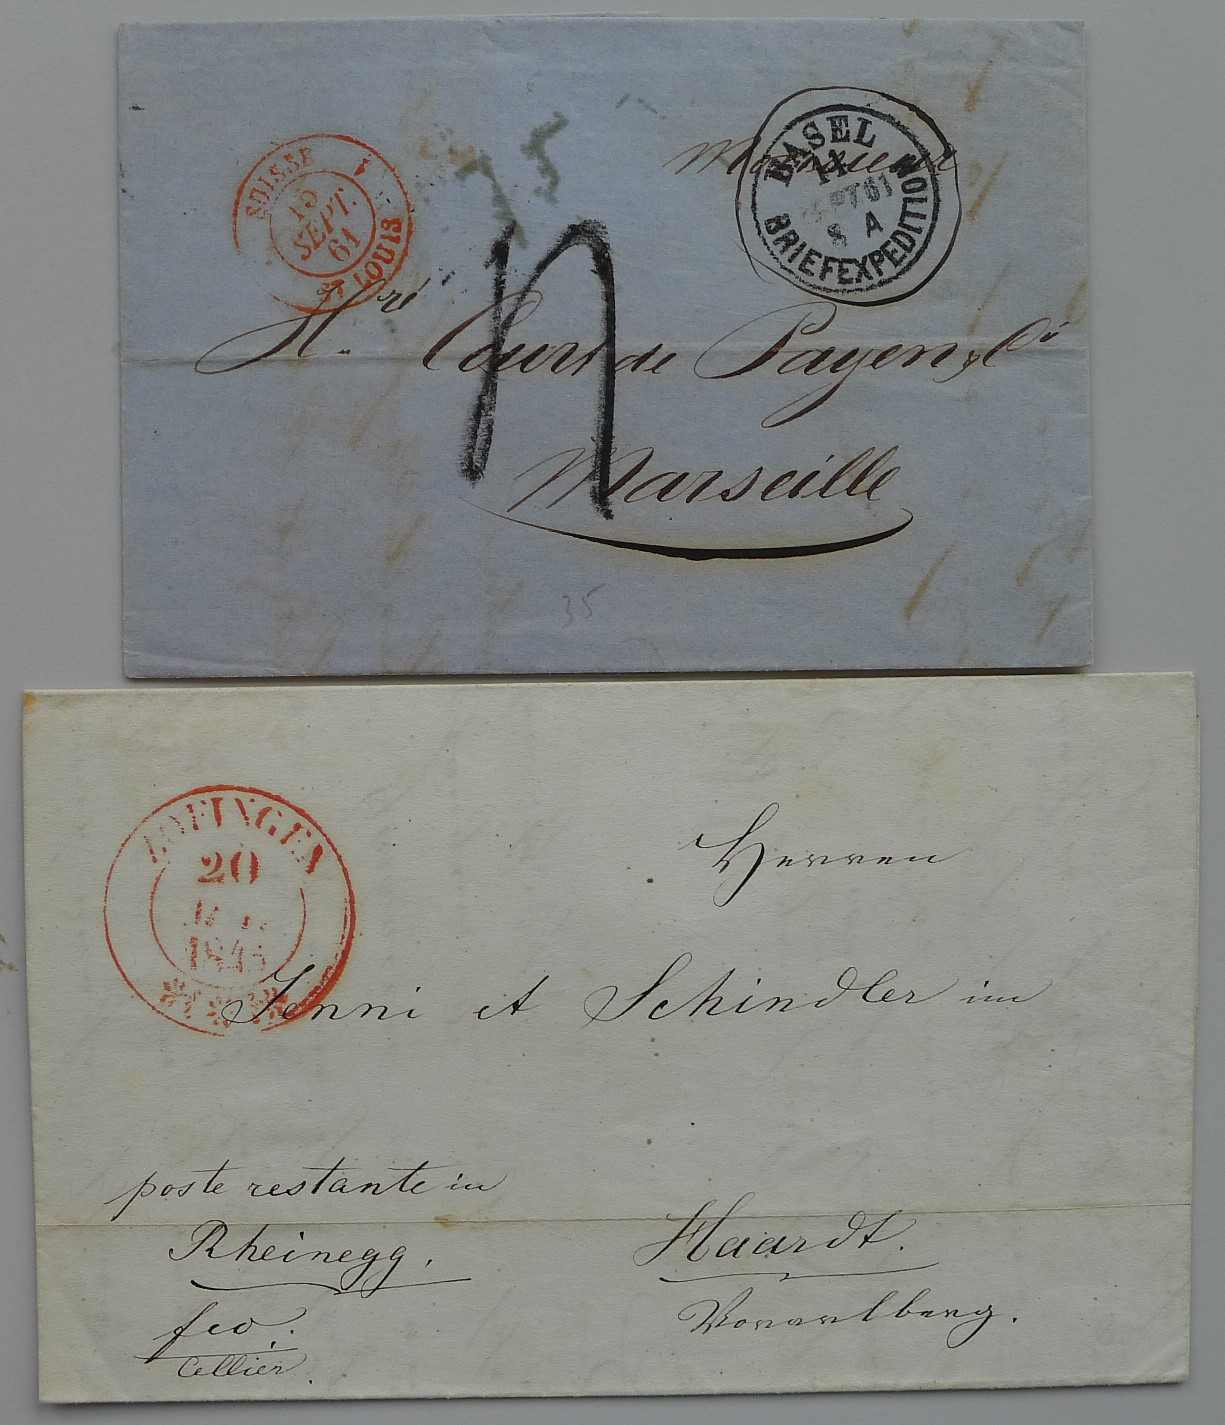 SUISSE
15
SEPT.
61
ST LOUIS
Monsieur
BASEL
IX
SEPT 61
8 A
BRIEFEXPEDITION
Hre Courtde Payen & Ce
Marseille
35
ZOFINGEN
20
1845
Herren
Jenni et Schindler im
poste restante in
Rheinegg.
fco.
Cellier.
Haardt.
Vorarlberg.